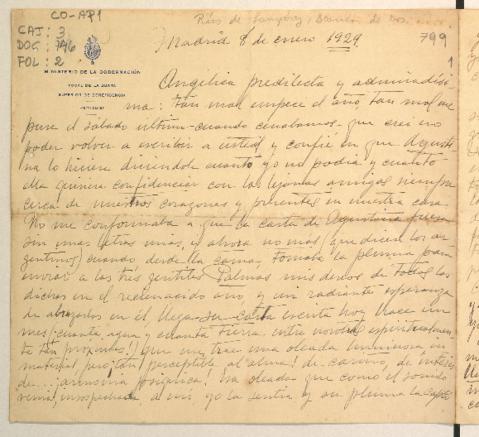 CO-AP1
CAJ: 3
DOC: 746
FOL: 2
799
1
Madrid 8 de enero 1929
MINISTERIO DE LA GOBERNACIÓN
VOCAL DE LA JUNTA
SUPERIOR DE BENEFICENCIA
Angélica predilecta y admiradísi-
ma: Tan mal empecé el año, tan mal me
puse el sábado último - cuando cenábamos - que creí no
poder volver a escribir a usted, y confié en que
lo hiciera diciéndole cuanto yo no podía y cuanto
ella quisiera confidenciar con los lejanos amigos siempre
cerca de nuestros corazones y presentes en nuestra casa.
No me conformaba a que la carta de fuese
sin unas letras mías, y ahora no más (que dicen los ar-
gentinos) cuando desde la cama, tomaba la pluma para
enviar a las tres gentiles Palmas mis deseos de todas las
dichas en el recienacido año, y mi radiante esperanza
de abrazarlos en él llega su carta escrita hoy hace un
mes (¡cuánta agua y cuánta tierra entre nosotros
tan próximos!) que me trae una oleada luminosa in-
material pero tan perceptible al alma! de cariño, de interés
de... ¡armonía! Una oleada que como el sonido
a mí yo la sentía y su pluma la